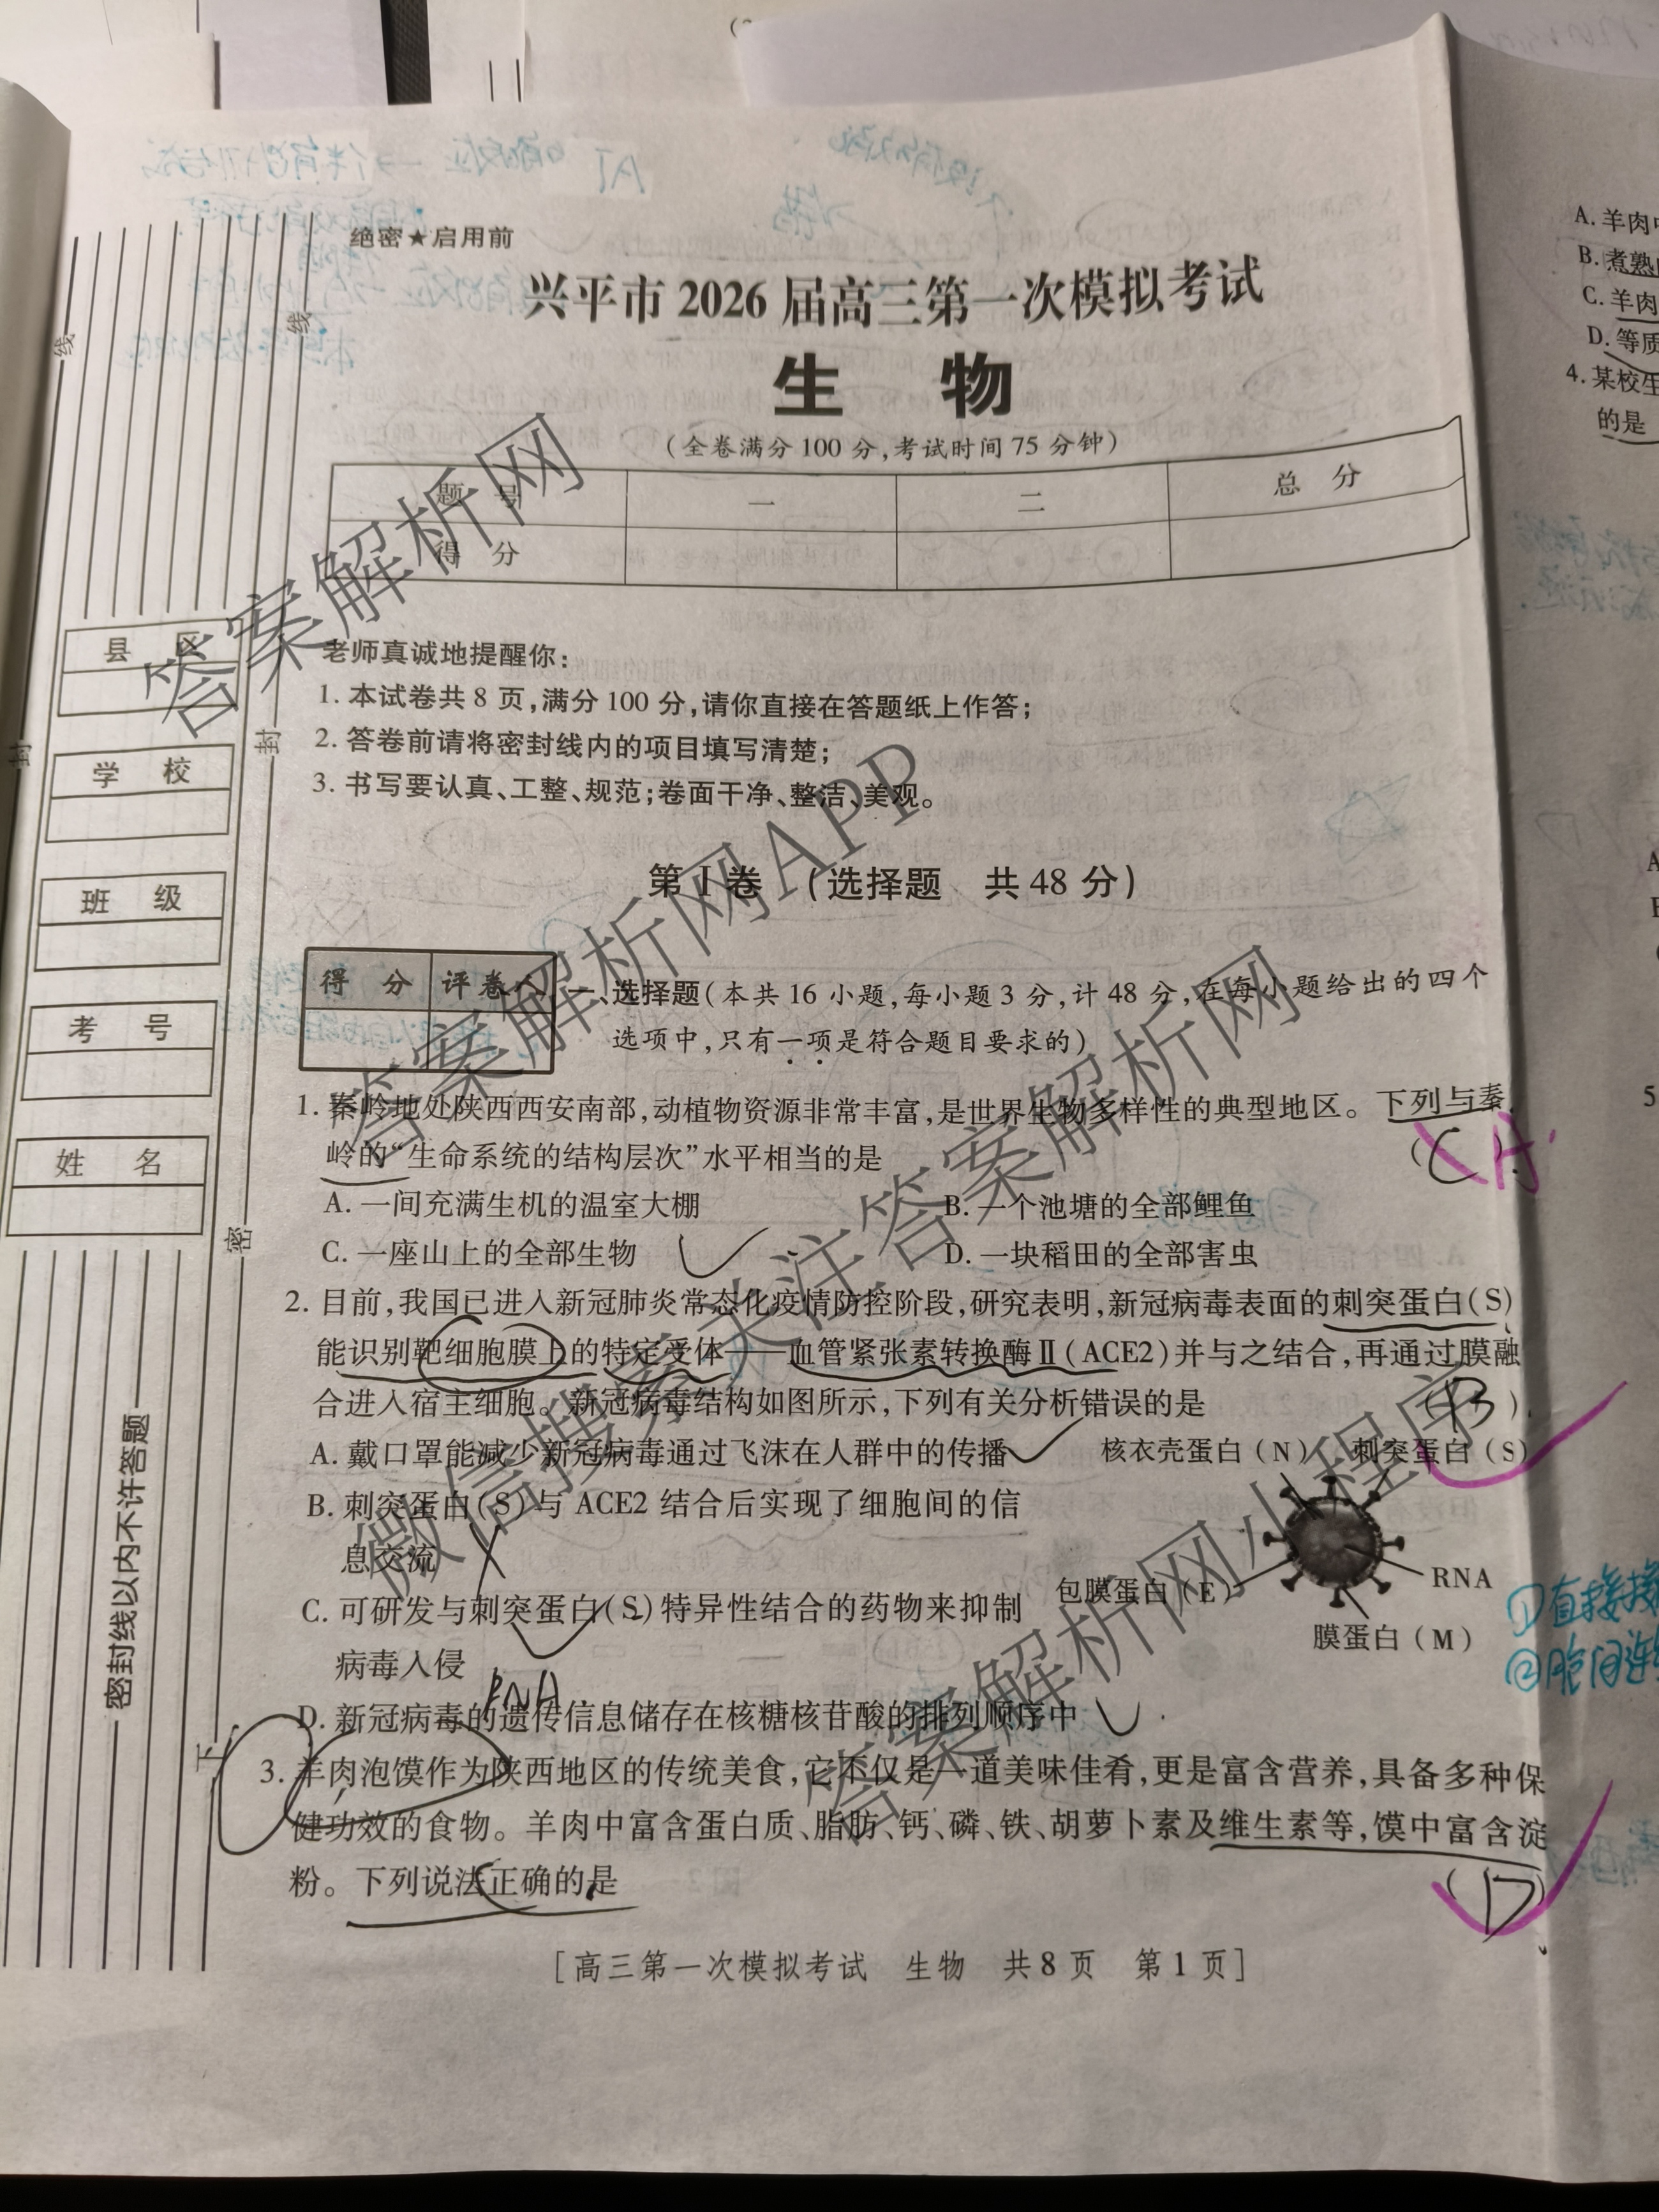 绝密★启用前
兴平市2026届高三第一次模拟考试
生 物
(全卷满分100分,考试时间75分钟)
题 号 一 二 总 分
得 分
老师真诚地提醒你:
1. 本试卷共8页,满分100分,请你直接在答题纸上作答;
2. 答卷前请将密封线内的项目填写清楚;
3. 书写要认真、工整、规范;卷面干净、整洁、美观。
第Ⅰ卷 (选择题 共48分)
得 分 评卷人
一、选择题(本共16小题,每小题3分,计48分,在每小题给出的四个
选项中,只有一项是符合题目要求的)
1. 秦岭地处陕西西安南部,动植物资源非常丰富,是世界生物多样性的典型地区。下列与秦
岭的“生命系统的结构层次”水平相当的是 (C A
A. 一间充满生机的温室大棚 B. 一个池塘的全部鲤鱼
C. 一座山上的全部生物 D. 一块稻田的全部害虫
2. 目前,我国已进入新冠肺炎常态化疫情防控阶段,研究表明,新冠病毒表面的刺突蛋白(S)
能识别靶细胞膜上的特定受体——血管紧张素转换酶Ⅱ(ACE2)并与之结合,再通过膜融
合进入宿主细胞。新冠病毒结构如图所示,下列有关分析错误的是 (B)
A. 戴口罩能减少新冠病毒通过飞沫在人群中的传播
B. 刺突蛋白(S)与ACE2结合后实现了细胞间的信
息交流
C. 可研发与刺突蛋白(S)特异性结合的药物来抑制
病毒入侵
RNA
D. 新冠病毒的遗传信息储存在核糖核苷酸的排列顺序中
核衣壳蛋白(N) 刺突蛋白(S)
包膜蛋白(E)
RNA
膜蛋白(M)
3. 羊肉泡馍作为陕西地区的传统美食,它不仅是一道美味佳肴,更是富含营养,具备多种保
健功效的食物。羊肉中富含蛋白质、脂肪、钙、磷、铁、胡萝卜素及维生素等,馍中富含淀
粉。下列说法正确的是 (D)
[高三第一次模拟考试 生物 共8页 第1页]
县 区
学 校
班 级
考 号
姓 名
密封线以内不许答题
线
封
线
封
密
下
A. 羊肉
B. 煮熟
C. 羊肉
D. 等质
4. 某校生
的是
5
①直接接
②胞间连
答案解析网
答案解析网APP
微信搜索关注答案解析网
答案解析网小程序